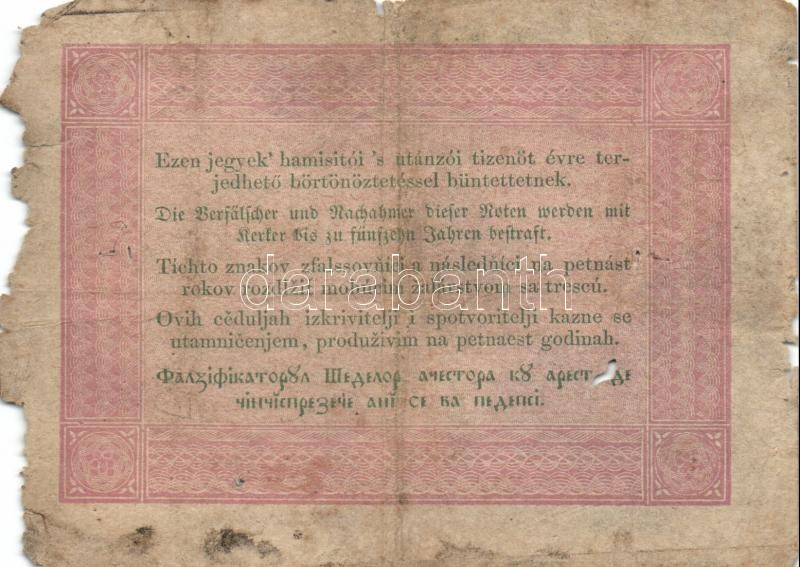 Ezen jegyek' hamisitói 's utánzói tizenöt évre ter-
jedhető börtönöztetéssel büntettetnek.
Die Verfälscher und Nachahmer dieser Noten werden mit
Kerker bis zu fünfzehn Jahren bestraft.
Tíchto znakov zfalssovňíci a následňíci na petnást
rokov rozďížiť mohúcím zalárstvom sa trescú.
darabanth
Ovih cěduljah izkrivitelji i spotvoritelji kazne se
utamničenjem, produživim na petnaest godinah.
Фалзіфікаторꙋл Шеделор ачестора кꙋ арест де
чінчіспрезече ані се ва педепсі.